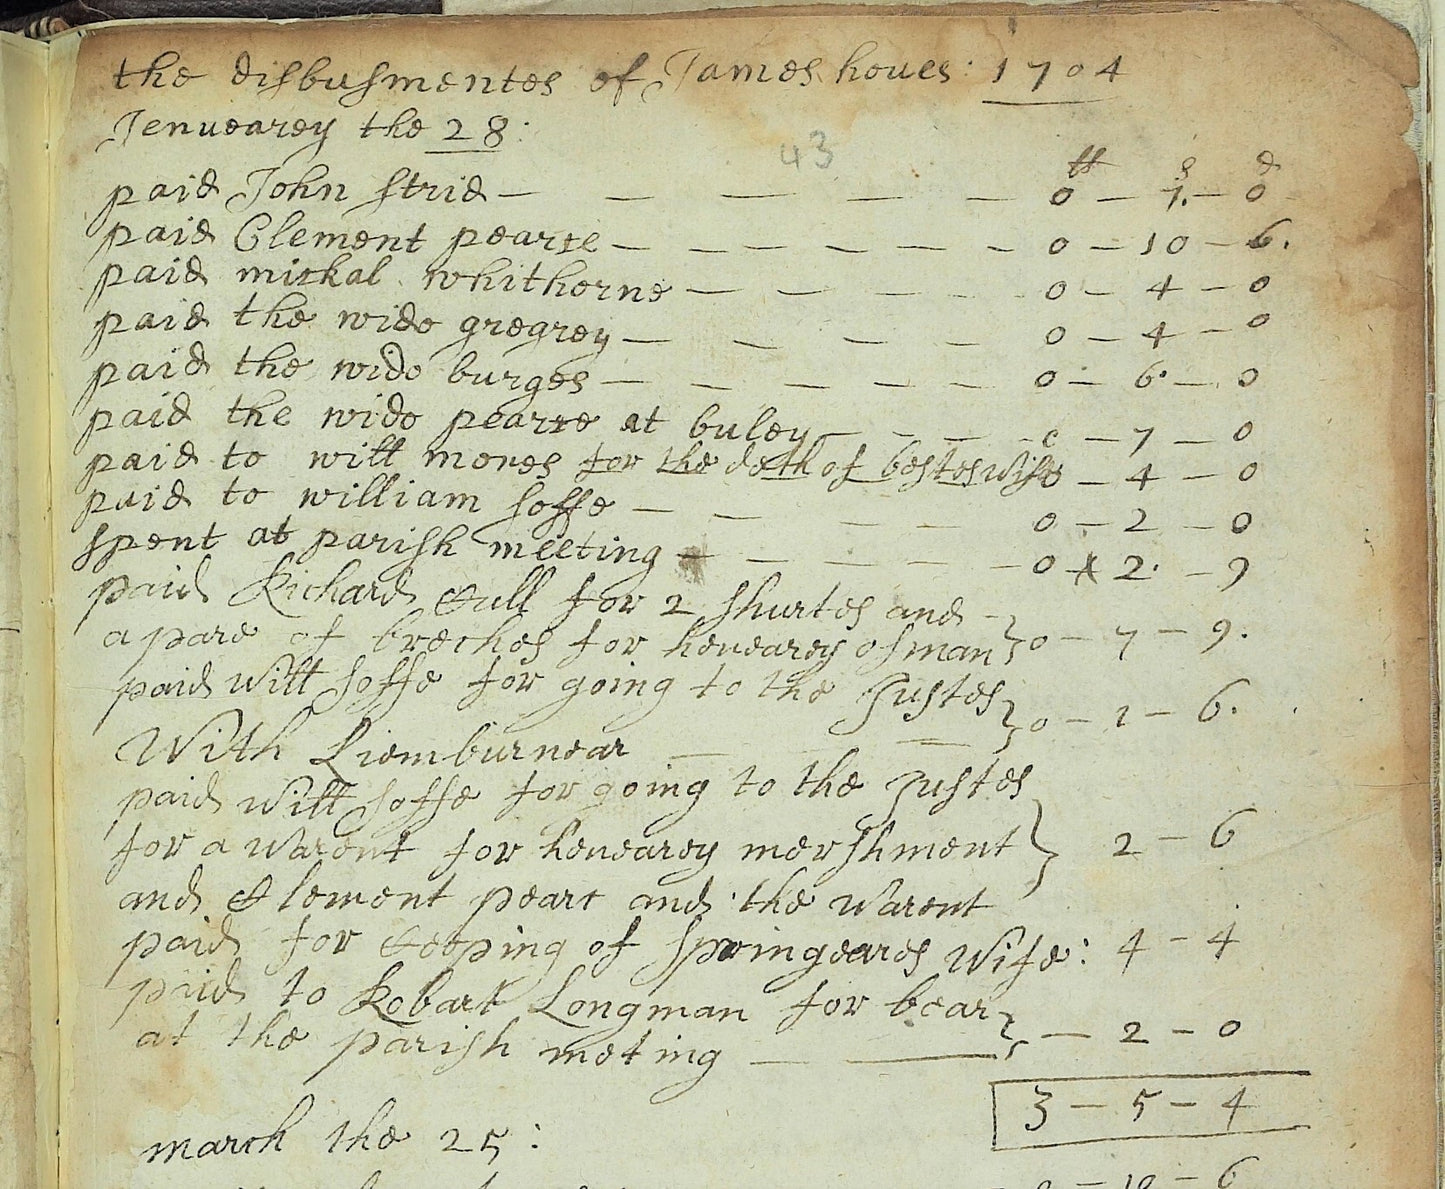 the disbusmentes of James houes : 1704
Jenuearey the 28 :
43
lt s d
paid John Strid — — — — — 0 — 7. — 0
paid Clement pearce — — — — — — 0 — 10 — 6.
paid mickal whithorne — — — — 0 — 4 — 0
paid the wido gregrey — — — — 0 — 4 — 0
paid the wido burges — — — — — 0 — 6 — 0
paid the wido pearce at buley — — — 0 — 7 — 0
paid to will mores for the deth of bestes wife 0 — 4 — 0
paid to william soffe — — — — 0 — 2 — 0
spent at parish meeting — — — — — 0 — 2 — 9
paid Richard Cull for 2 shurtes and —
a pare of breches for henearey osman } 0 — 7 — 9.
paid will soffe for going to the Justes
With Liemburnear — — — } 0 — 1 — 6.
paid will soffe for going to the Justes
for a Warent for henearey mershment } 2 — 6
and Clement pearc and the warent
paid for Ceeping of springeares Wife : 4 — 4
paid to Robart Longman for bear
at the parish meting — — } — 2 — 0
3 — 5 — 4
march the 25 :
0 — 10 — 6